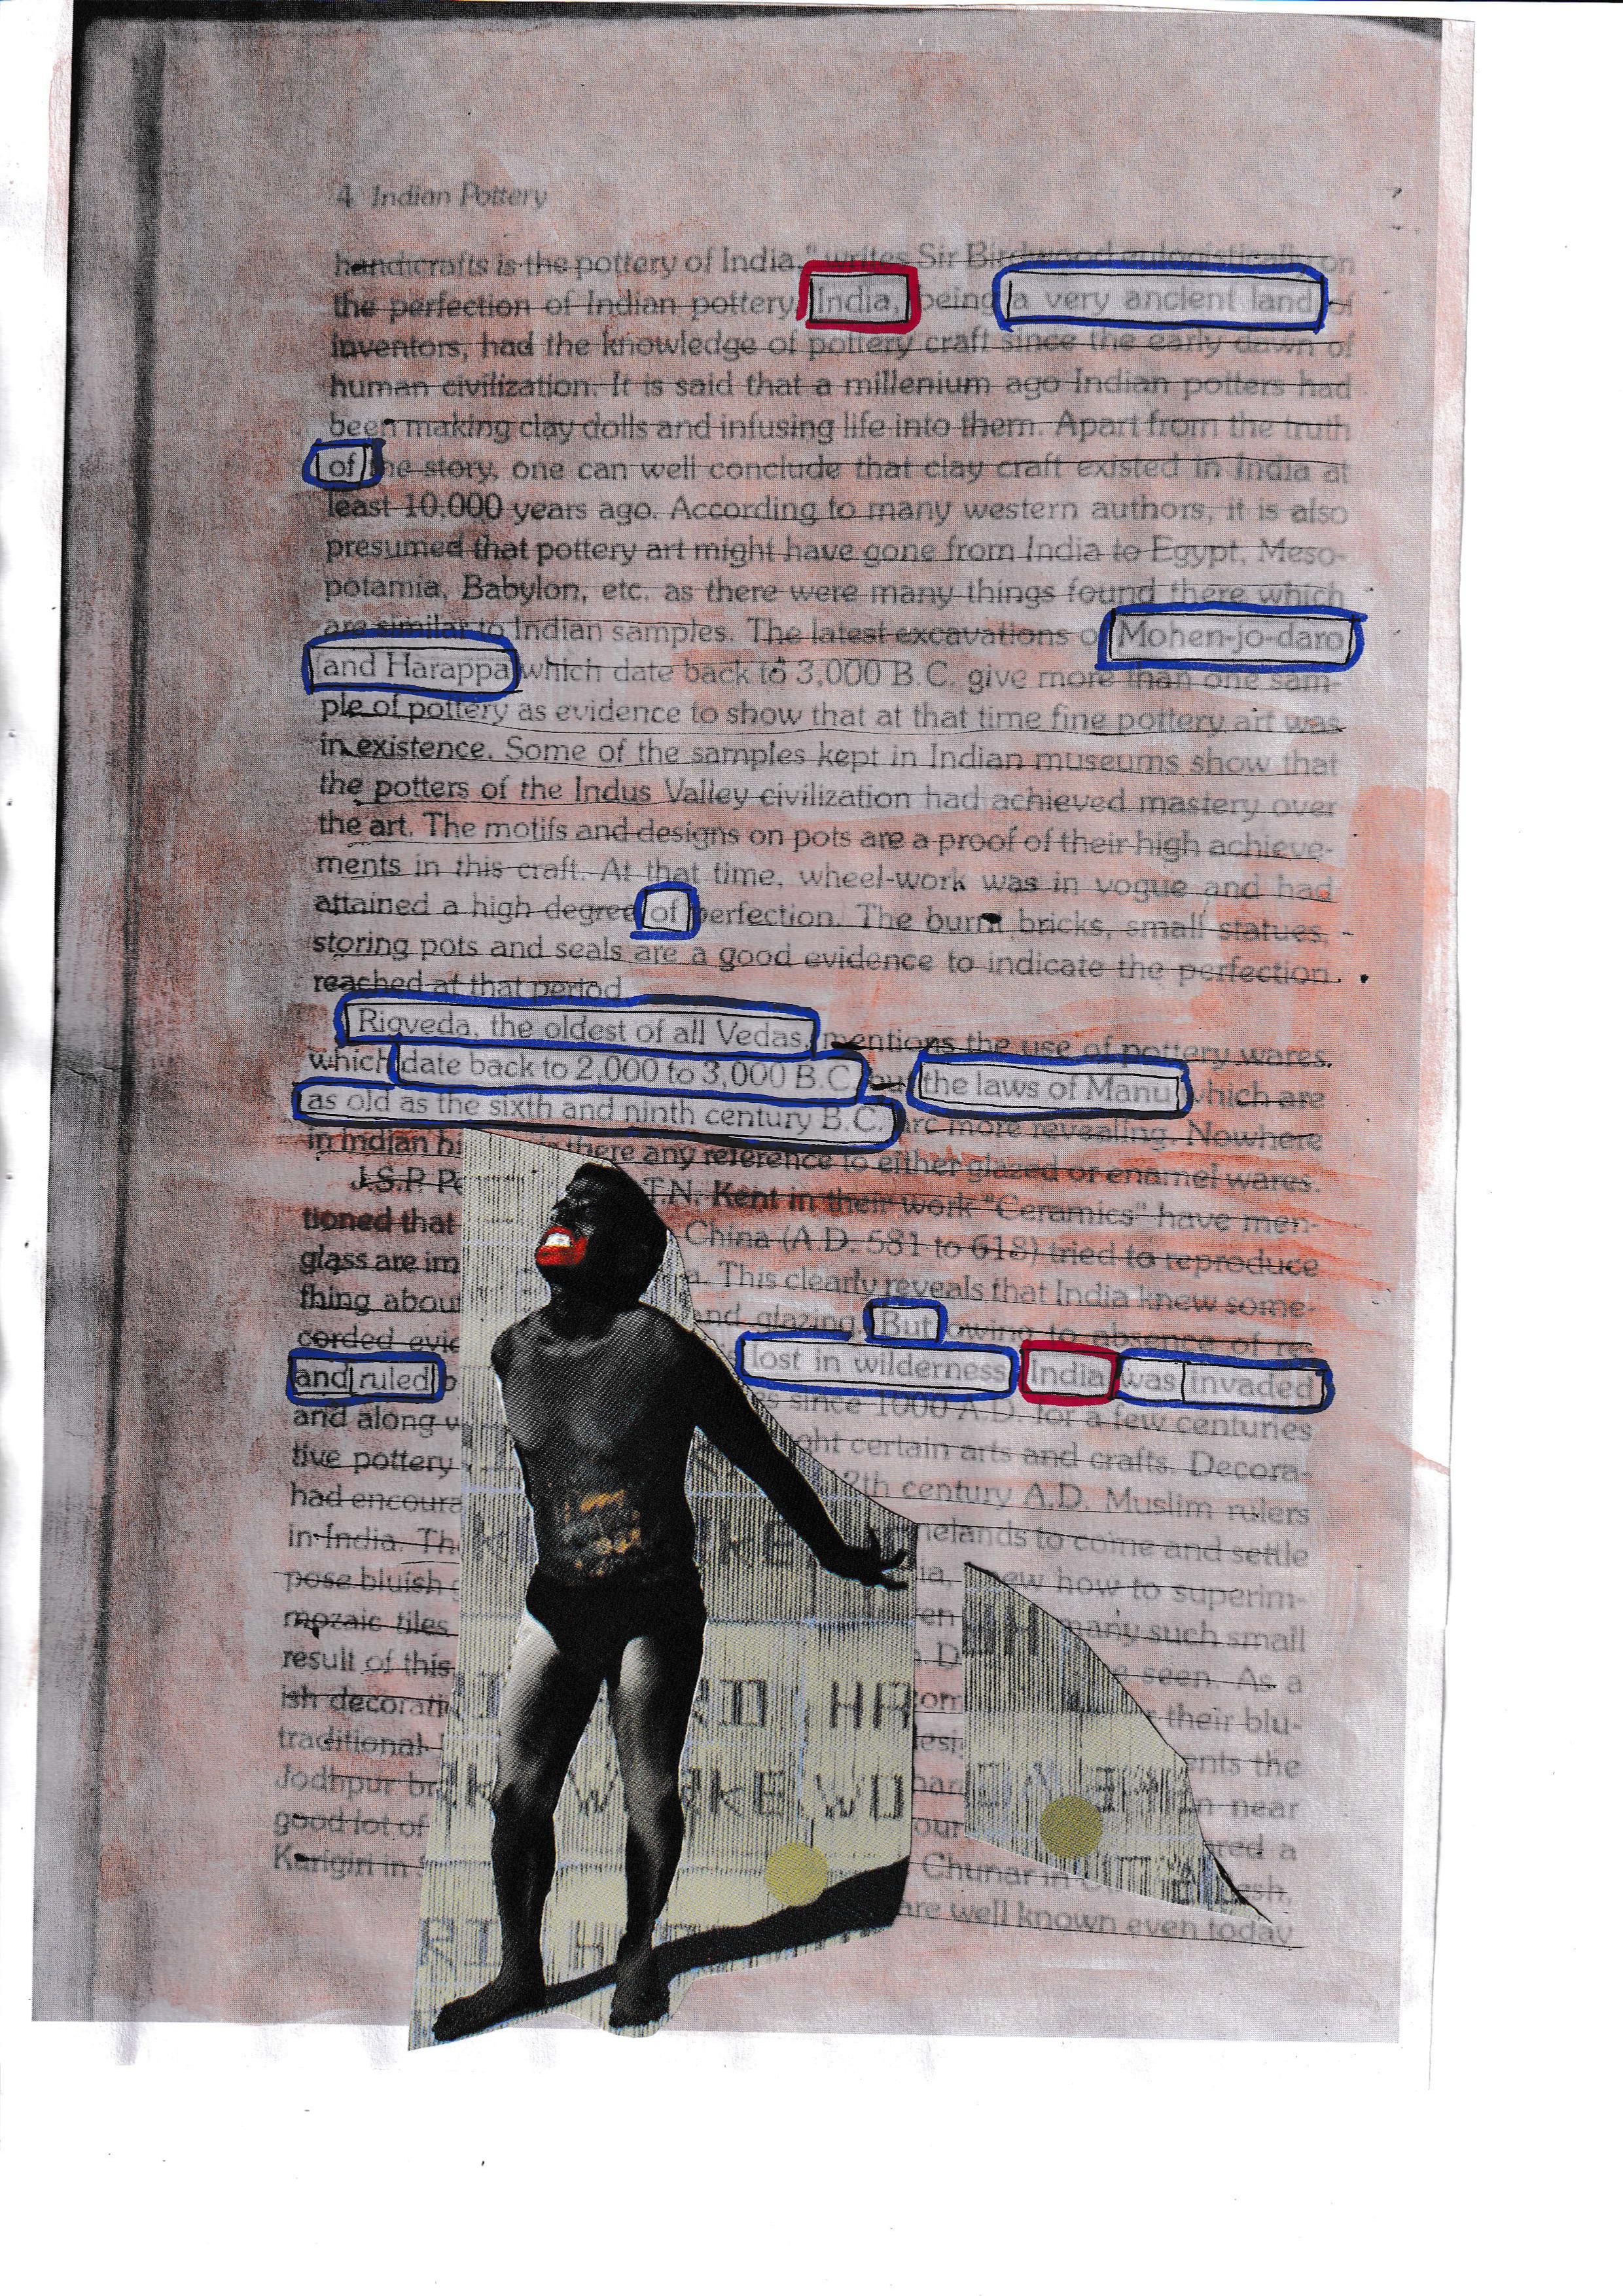 4 Indian Pottery
handicrafts is the pottery of India," writes Sir Birdwood eulogistically on
the perfection of Indian pottery. India, being a very ancient land of
inventors, had the knowledge of pottery craft since the early dawn of
human civilization. It is said that a millenium ago Indian potters had
been making clay dolls and infusing life into them. Apart from the truth
of the story, one can well conclude that clay craft existed in India at
least 10,000 years ago. According to many western authors, it is also
presumed that pottery art might have gone from India to Egypt, Meso-
potamia, Babylon, etc. as there were many things found there which
are similar to Indian samples. The latest excavations of Mohen-jo-daro
and Harappa which date back to 3,000 B.C. give more than one sam-
ple of pottery as evidence to show that at that time fine pottery art was
in existence. Some of the samples kept in Indian museums show that
the potters of the Indus Valley civilization had achieved mastery over
the art. The motifs and designs on pots are a proof of their high achieve-
ments in this craft. At that time, wheel-work was in vogue and had
attained a high degree of perfection. The burnt bricks, small statues,
storing pots and seals are a good evidence to indicate the perfection
reached at that period
Rigveda, the oldest of all Vedas, mentions the use of pottery wares.
which date back to 2,000 to 3,000 B.C. but the laws of Manu which are
as old as the sixth and ninth century B.C. are more revealing. Nowhere
in Indian hi there any reference to either glazed or enamel wares.
J.S.P. T.N. Kent in their work "Ceramics" have men-
tioned that China (A.D. 581 to 618) tried to reproduce
glass are im a. This clearly reveals that India knew some-
thing about and glazing. But owing to absence of re-
corded evid lost in wilderness. India was invaded
and ruled b s since 1000 A.D. for a few centuries
and along w ght certain arts and crafts. Decora-
tive pottery 2th century A.D. Muslim rulers
had encoura nelands to come and settle
in India. Th ia, new how to superim-
pose bluish en many such small
mozaic tiles D e seen. As a
result of this om r their blu-
ish decorati desi ents the
traditional n near
Jodhpur br red a
good lot of Chunar in sh,
Karigiri in are well known even today
KE
RD HA
K W RKE WO
RI H